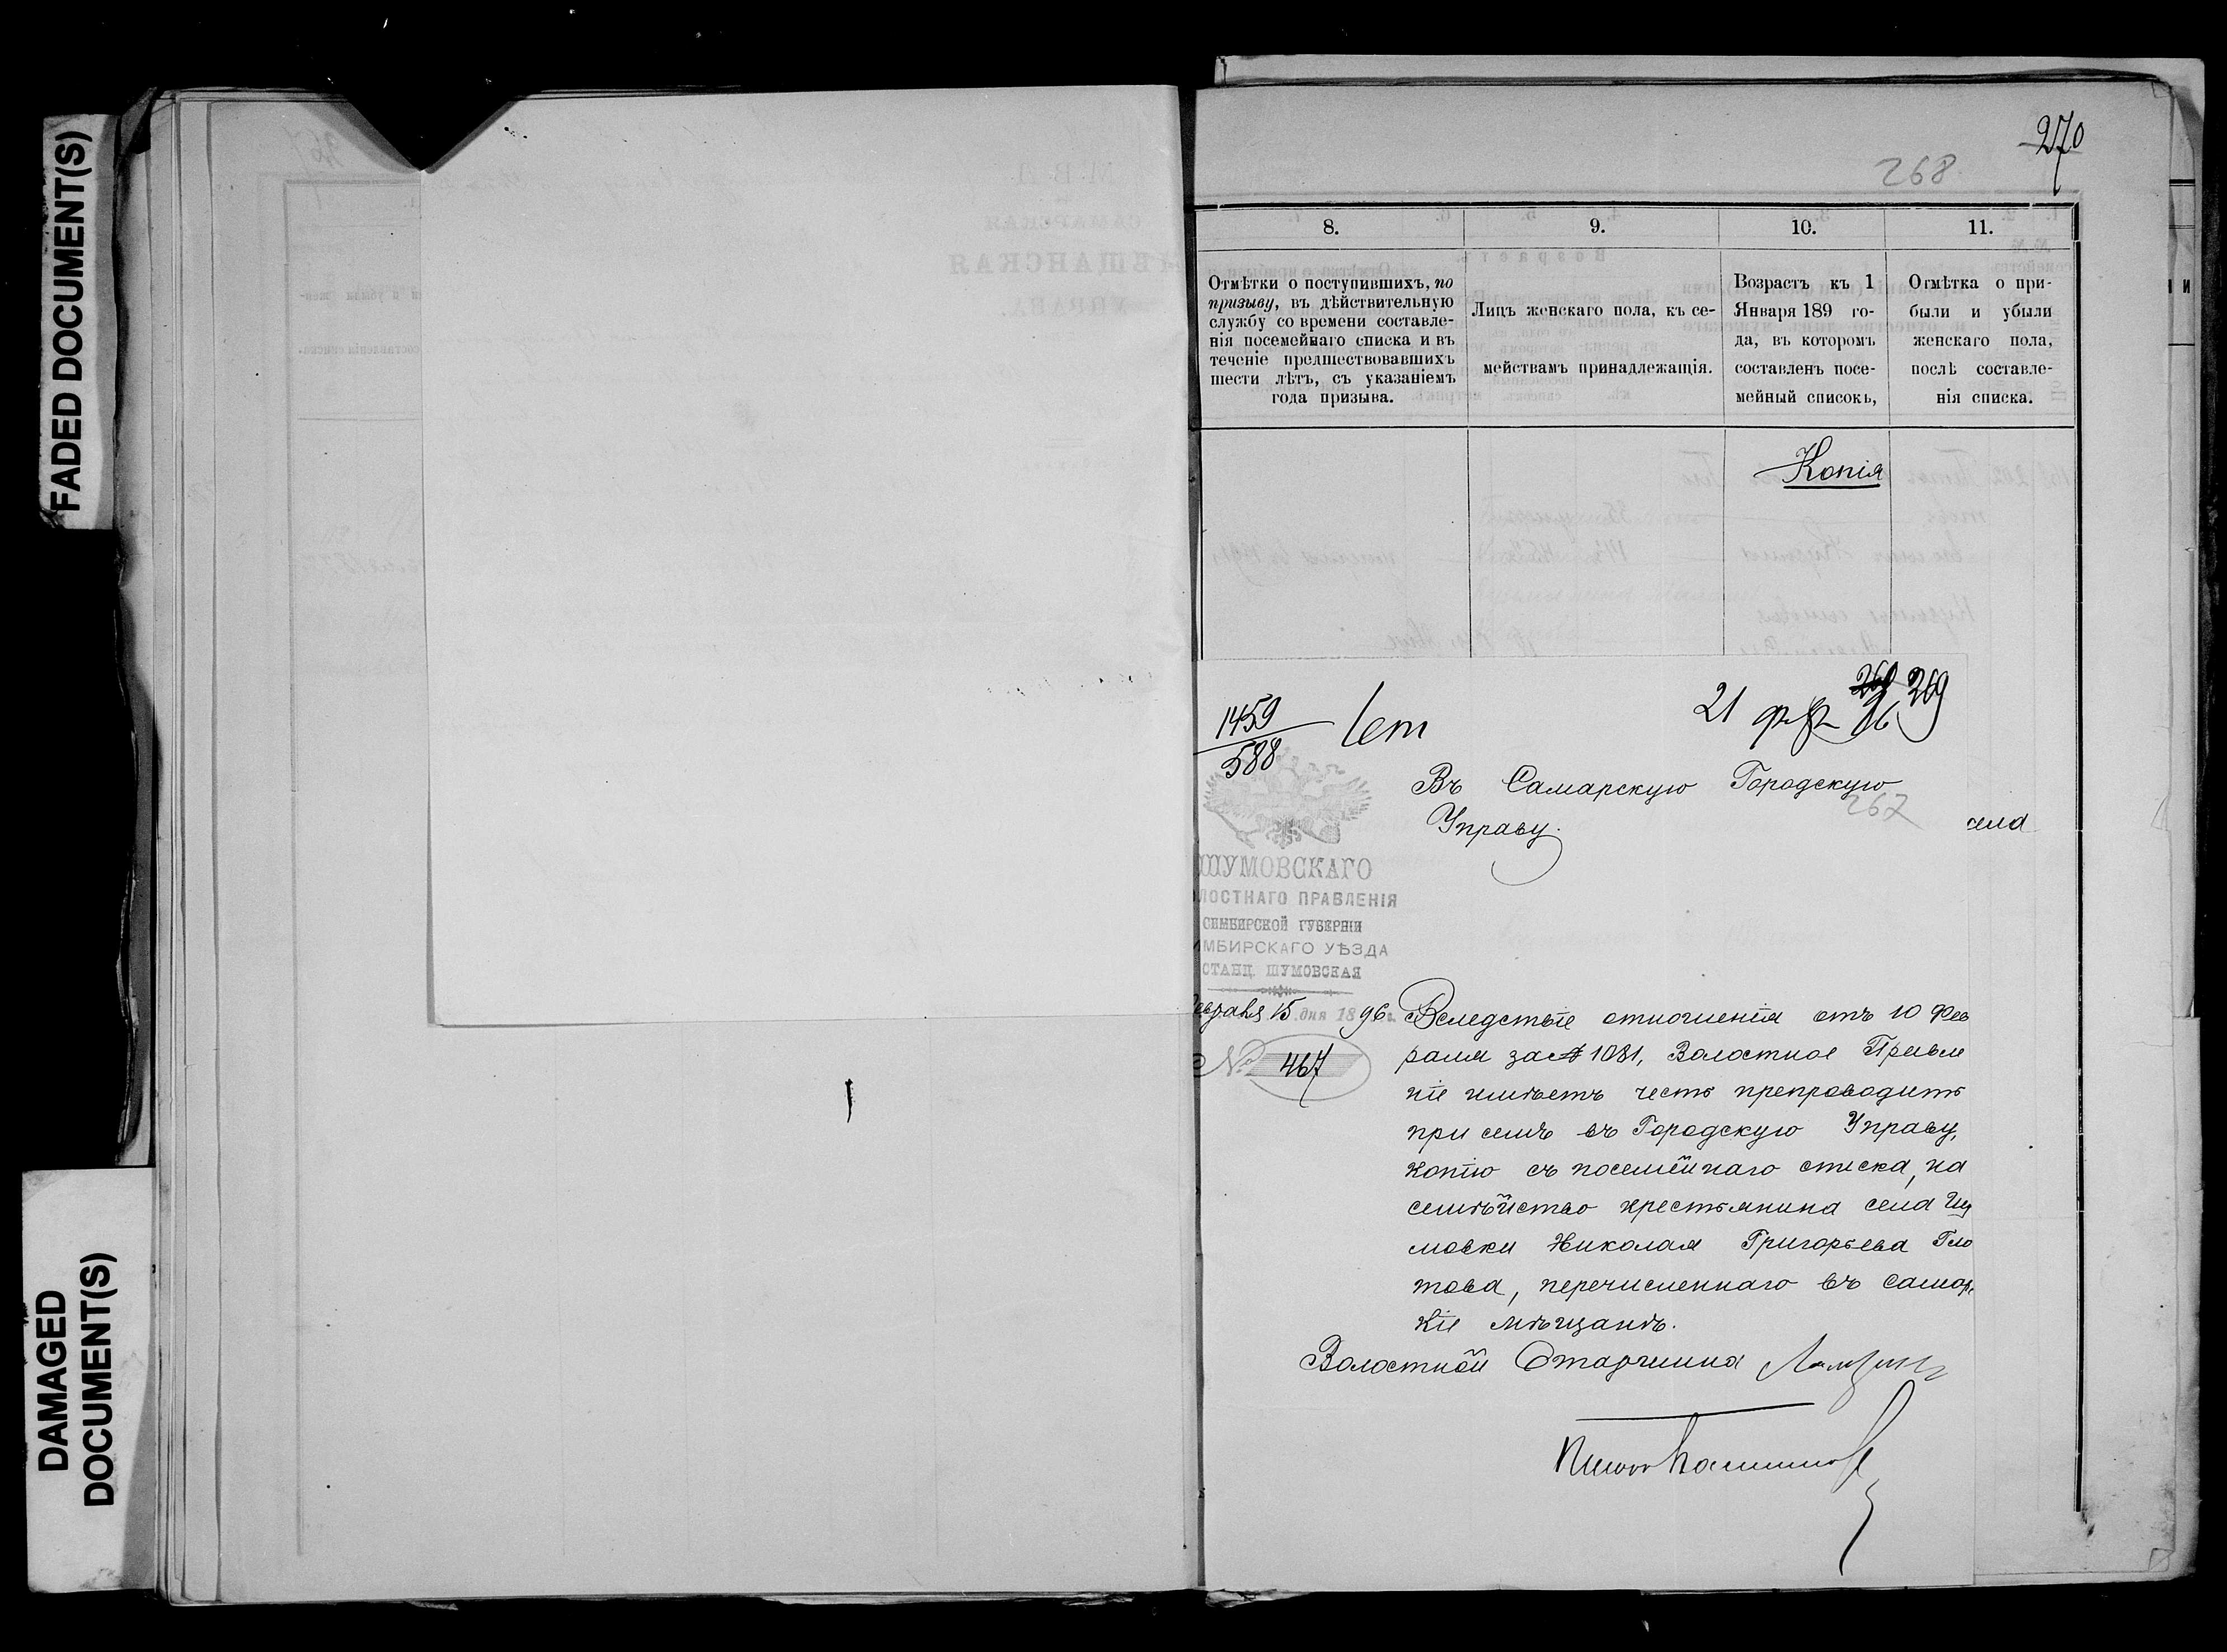 FADED DOCUMENT(S)
DAMAGED
DOCUMENT(S)
270
268
8.
9.
10.
11.
Отмѣтки о поступившихъ, по
призыву, въ дѣйствительную
службу со времени составле-
нія посемейнаго списка и въ
теченіе предшествовавшихъ
шести лѣтъ, съ указаніемъ
года призыва.
Лицъ женскаго пола, къ се-
мействамъ принадлежащія.
Возрастъ къ 1
Января 189 го-
да, въ которомъ
составленъ посе-
мейный списокъ,
Отмѣтка о при-
были и убыли
женскаго пола,
послѣ составле-
нія списка.
Копія
1459
588
21
269
Въ Самарскую Городскую
267
Управу.
села
ШУМОВСКАГО
ЛОСТНАГО ПРАВЛЕНІЯ
СИМБИРСКОЙ ГУБЕРНІИ
МБИРСКАГО УѢЗДА
СТАНЦ. ШУМОВСКАЯ
15 дня 1896 г.
№ 467
Вследствіе отношенія отъ 10 Фев
раля за № 1081, Волостное Правле
ніе имѣетъ честь препроводить
при семъ въ Городскую Управу,
копію съ посемейнаго списка, на
семѣйство крестьянина села Шу
мовки Николая Григорьева Гло
това, перечисленнаго въ самарс
кіе мѣщанѣ.
Волостной Старшина